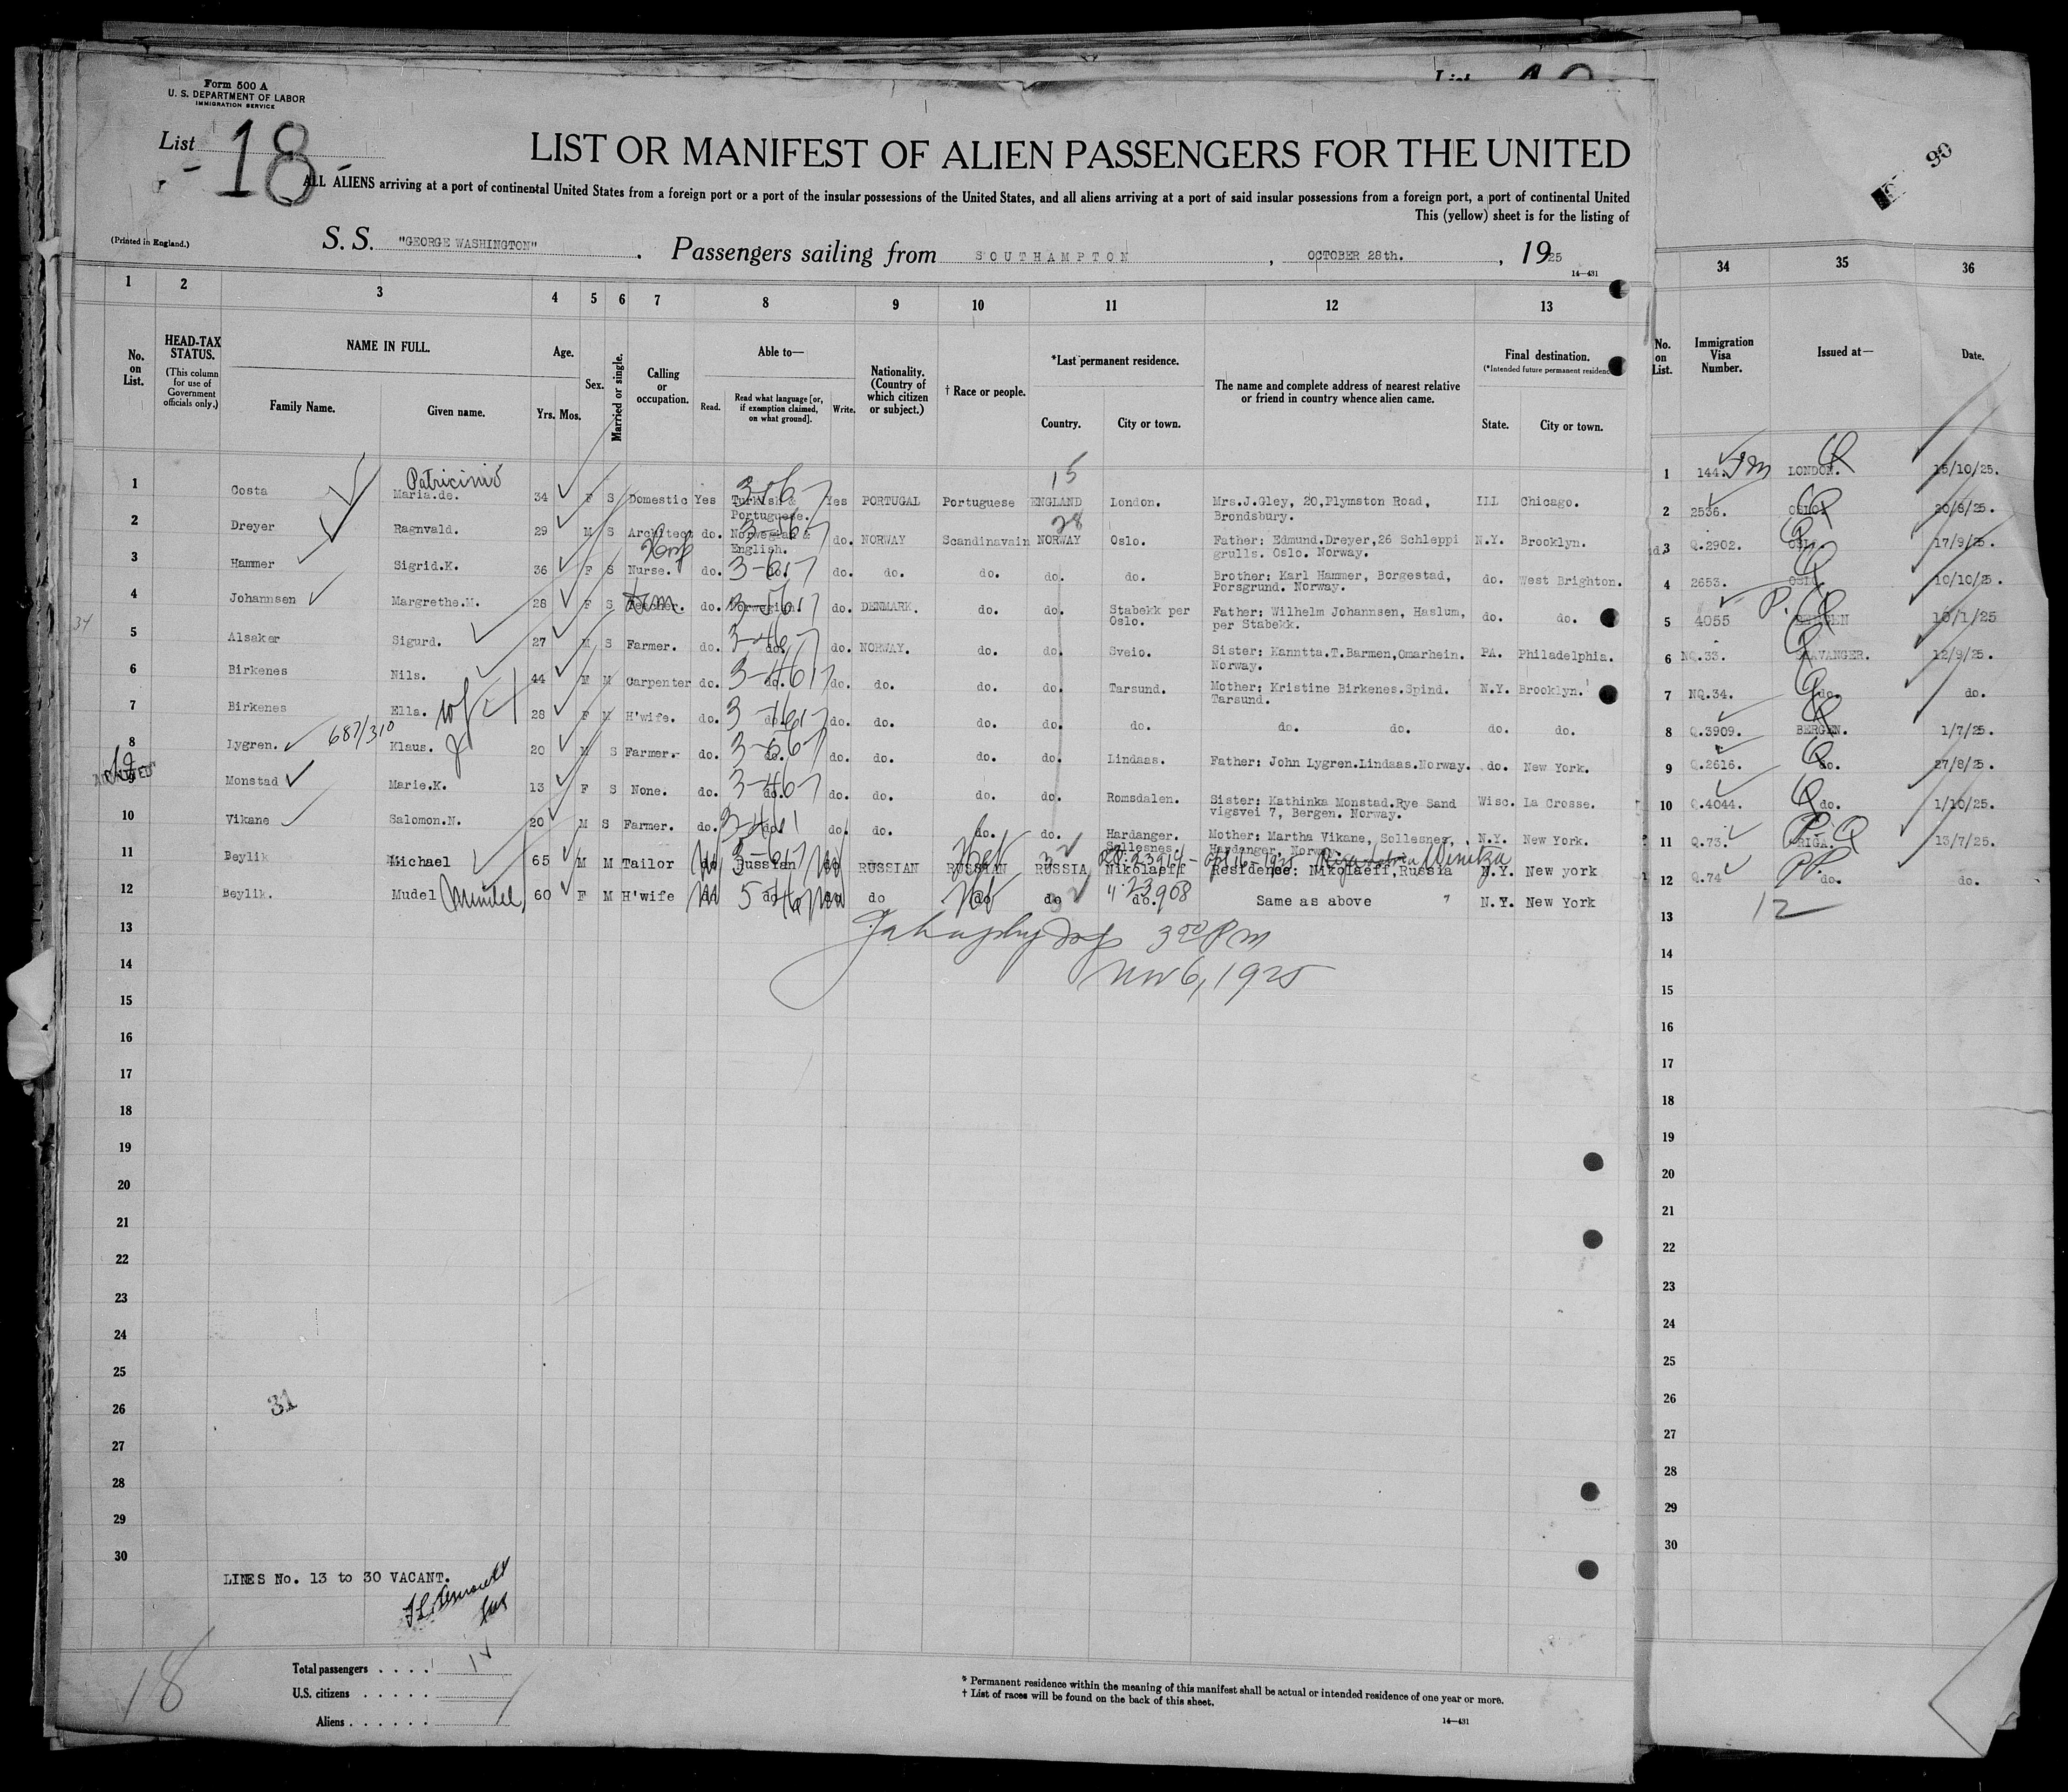 Form 500 A
U. S. DEPARTMENT OF LABOR
IMMIGRATION SERVICE
List
List -18-
LIST OR MANIFEST OF ALIEN PASSENGERS FOR THE UNITED
ALL ALIENS arriving at a port of continental United States from a foreign port or a port of the insular possessions of the United States, and all aliens arriving at a port of said insular possessions from a foreign port, a port of continental United
This (yellow) sheet is for the listing of
90
(Printed in England.)
S. S. "GEORGE WASHINGTON". Passengers sailing from SOUTHAMPTON, OCTOBER 28th., 1925
14—431
1 2 3 4 5 6 7 8 9 10 11 12 13 34 35 36
No. on List.
HEAD-TAX STATUS.
(This column for use of Government officials only.)
NAME IN FULL.
Family Name. Given name.
Age.
Yrs. Mos.
Sex.
Married or single.
Calling or occupation.
Able to—
Read. Read what language [or, if exemption claimed, on what ground]. Write.
Nationality. (Country of which citizen or subject.)
† Race or people.
*Last permanent residence.
Country. City or town.
The name and complete address of nearest relative or friend in country whence alien came.
Final destination.
(*Intended future permanent residence
State. City or town.
No. on List.
Immigration Visa Number.
Issued at—
Date.
Patricinio 3-67 15
1 Costa Maria.de. 34 F S Domestic Yes Turkish & Portuguese. Yes PORTUGAL Portuguese ENGLAND London. Mrs.J.Gley, 20,Plymston Road, Brondsbury. ILL Chicago. 1 144. LONDON. 15/10/25.
28
2 Dreyer Ragnvald. 29 M S Architect do. Norwegian & English. do. NORWAY Scandinavain NORWAY Oslo. Father: Edmund.Dreyer,26 Schleppi grulls. Oslo. Norway. N.Y. Brooklyn. 2 2536. OSLO. 20/8/25.
3 Hammer Sigrid.K. 36 F S Nurse. do. do. do. do. do. do. do. Brother: Karl Hammer, Borgestad, Porsgrund. Norway. do. West Brighton. 3 Q.2902. OSLO. 17/9/25.
4 Johannsen Margrethe.M. 28 F S Teacher. do. Norwegian. do. DENMARK. do. do. Stabekk per Oslo. Father: Wilhelm Johannsen, Haslum, per Stabekk. do. do. 4 2653. OSLO 10/10/25.
34
5 Alsaker Sigurd. 27 M S Farmer. do. do. do. NORWAY. do. do. Sveio. Sister: Kanntta.T.Barmen,Omarhein. Norway. PA. Philadelphia. 5 4055 BERGEN 10/1/25
6 Birkenes Nils. 44 M M Carpenter do. do. do. do. do. do. Tarsund. Mother: Kristine Birkenes.Spind. Tarsund. N.Y. Brooklyn. 6 NQ.33. STAVANGER. 12/9/25.
7 Birkenes Ella. wf 28 F M H'wife. do. do. do. do. do. do. do. do. do. do. do. 7 NQ.34. do. do.
687/310
8 Lygren. Klaus. 20 M S Farmer. do. do. do. do. do. do. Lindaas. Father: John Lygren.Lindaas.Norway. do. New York. 8 Q.3909. BERGEN. 1/7/25.
9 Monstad Marie.K. 13 F S None. do. do. do. do. do. do. Romsdalen. Sister: Kathinka Monstad.Rye Sand vigsvei 7, Bergen. Norway. Wisc. La Crosse. 9 Q.2616. do. 27/8/25.
10 Vikane Salomon.N. 20 M S Farmer. do. do. do. do. do. do. Hardanger. Sollesnes. Mother: Martha Vikane, Sollesnes, Hardanger, Norway. N.Y. New York. 10 Q.4044. do. 1/10/25.
11 Beylik Michael 65 M M Tailor do Russian do RUSSIAN RUSSIAN Heb RUSSIA Nikolaeff Residence: Nikolaeff,Russia N.Y. New york 11 Q.73. RIGA. 13/7/25.
12 Beylik. Mudel Mindel 60 F M H'wife do do do do do Heb do do. 23908 Same as above " N.Y. New York 12 Q.74 do. do.
12
3 00 PM
Nov 6, 1925
13 13
14 14
15 15
16 16
17 17
18 18
19 19
20 20
21 21
22 22
23 23
24 24
25 25
26 26
31
27 27
28 28
29 29
30 30
LINES No. 13 to 30 VACANT.
18
Total passengers . . . .
U.S. citizens . . . . .
Aliens . . . . . .
* Permanent residence within the meaning of this manifest shall be actual or intended residence of one year or more.
† List of races will be found on the back of this sheet.
14—431